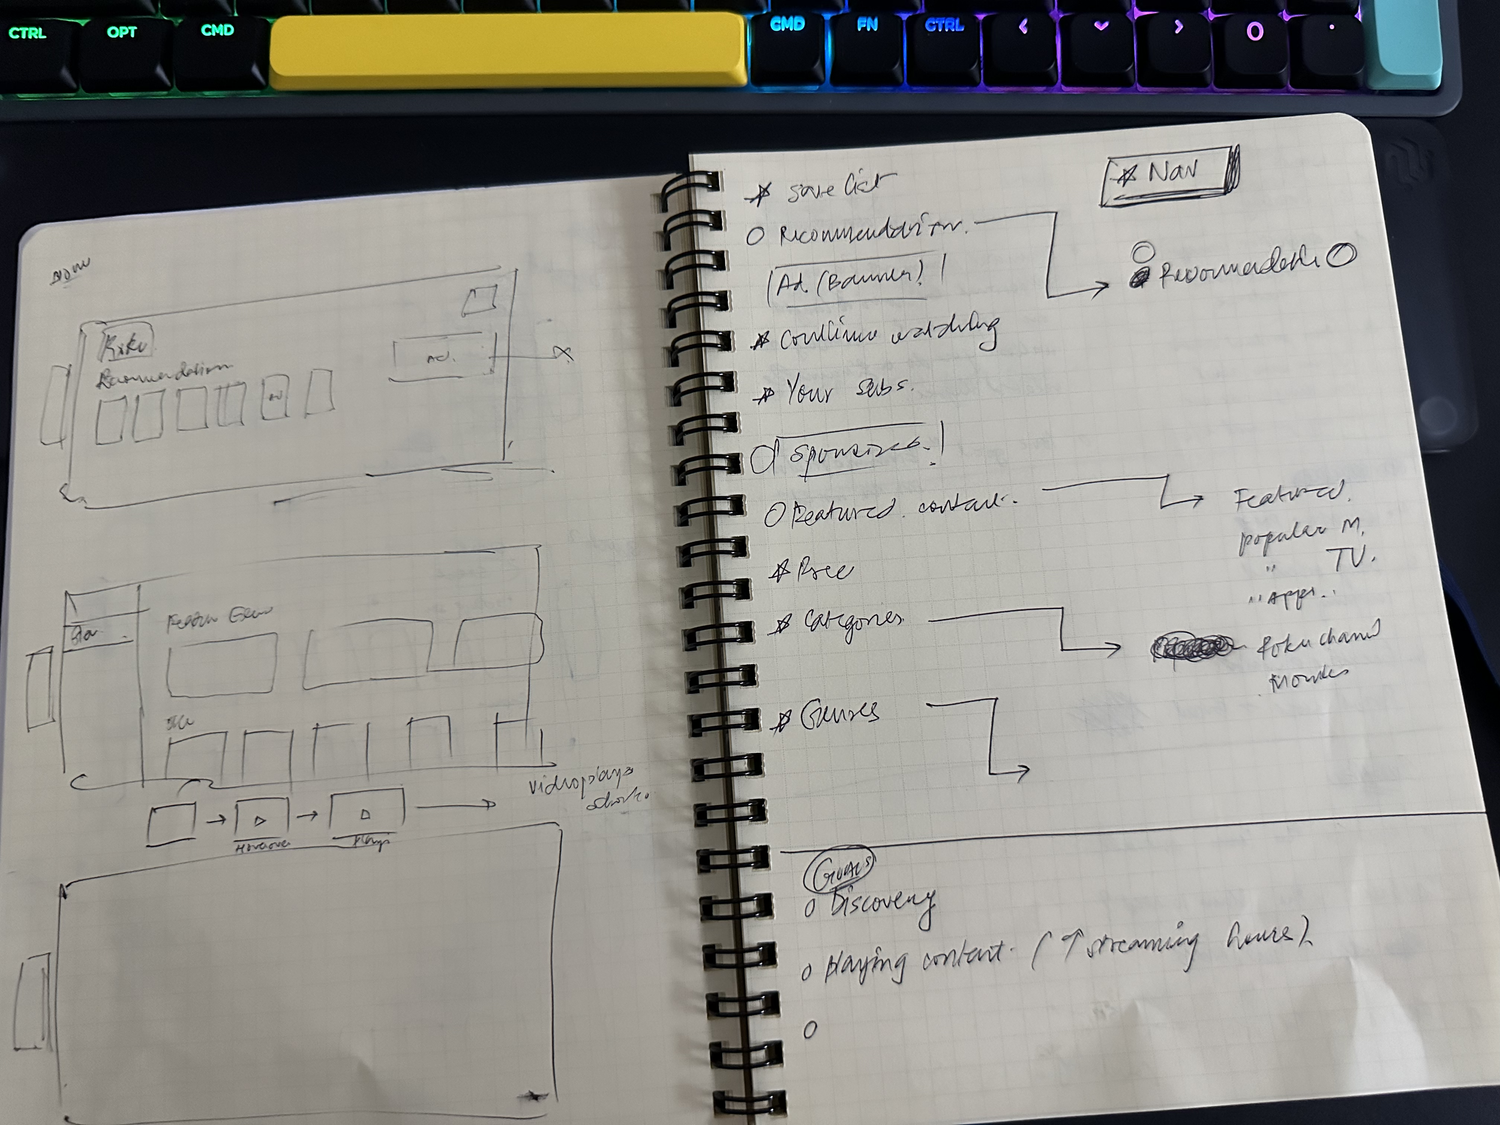 CTRL
OPT
CMD
CMD
FN
CTRL
Roku
Recommendation
Ad.
Hoverover
Plays
video plays
save list
Recommendation.
Ad. (Banner)
Continue watching
Your subs.
Featured. content.
Free
Categories
Genres
Nav
Featured.
popular M.
" TV.
" Apps.
Roku channel
Movies
Goals
Discovery
Playing content. (↑ streaming hours)